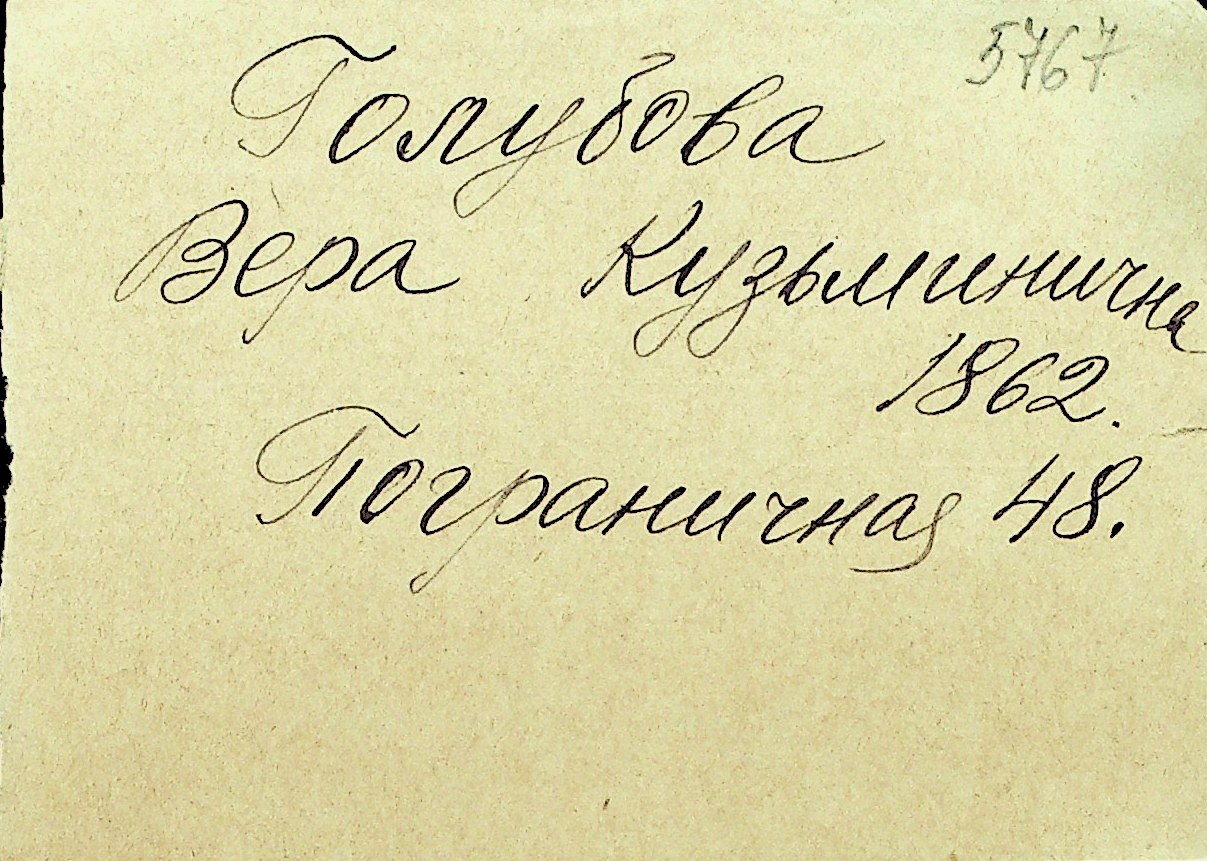 5767
Голубова
Вера Кузьминична
1862.
Пограничная 48.